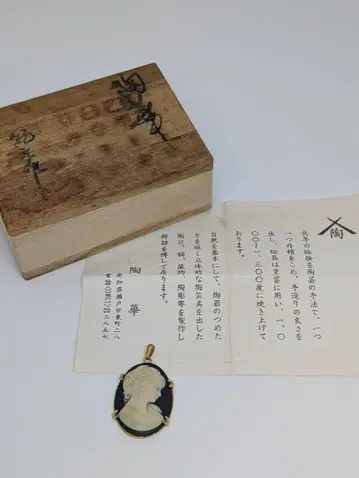 陶華
陶
長年の経験を陶芸の手法で、一つ
一つ丹精をこめ、手造りの良さを
生し、絵具は豊富に用い、一、〇
〇〇〜一、三〇〇度に焼き上げて
おります。
自然を基本にして、陶器のつめた
さを暖く立体的な陶芸美を出した
陶芸、額、置物、陶彫等を製作し
好評を博して居ります。
陶華
愛知県瀬戸市東町二ノ八